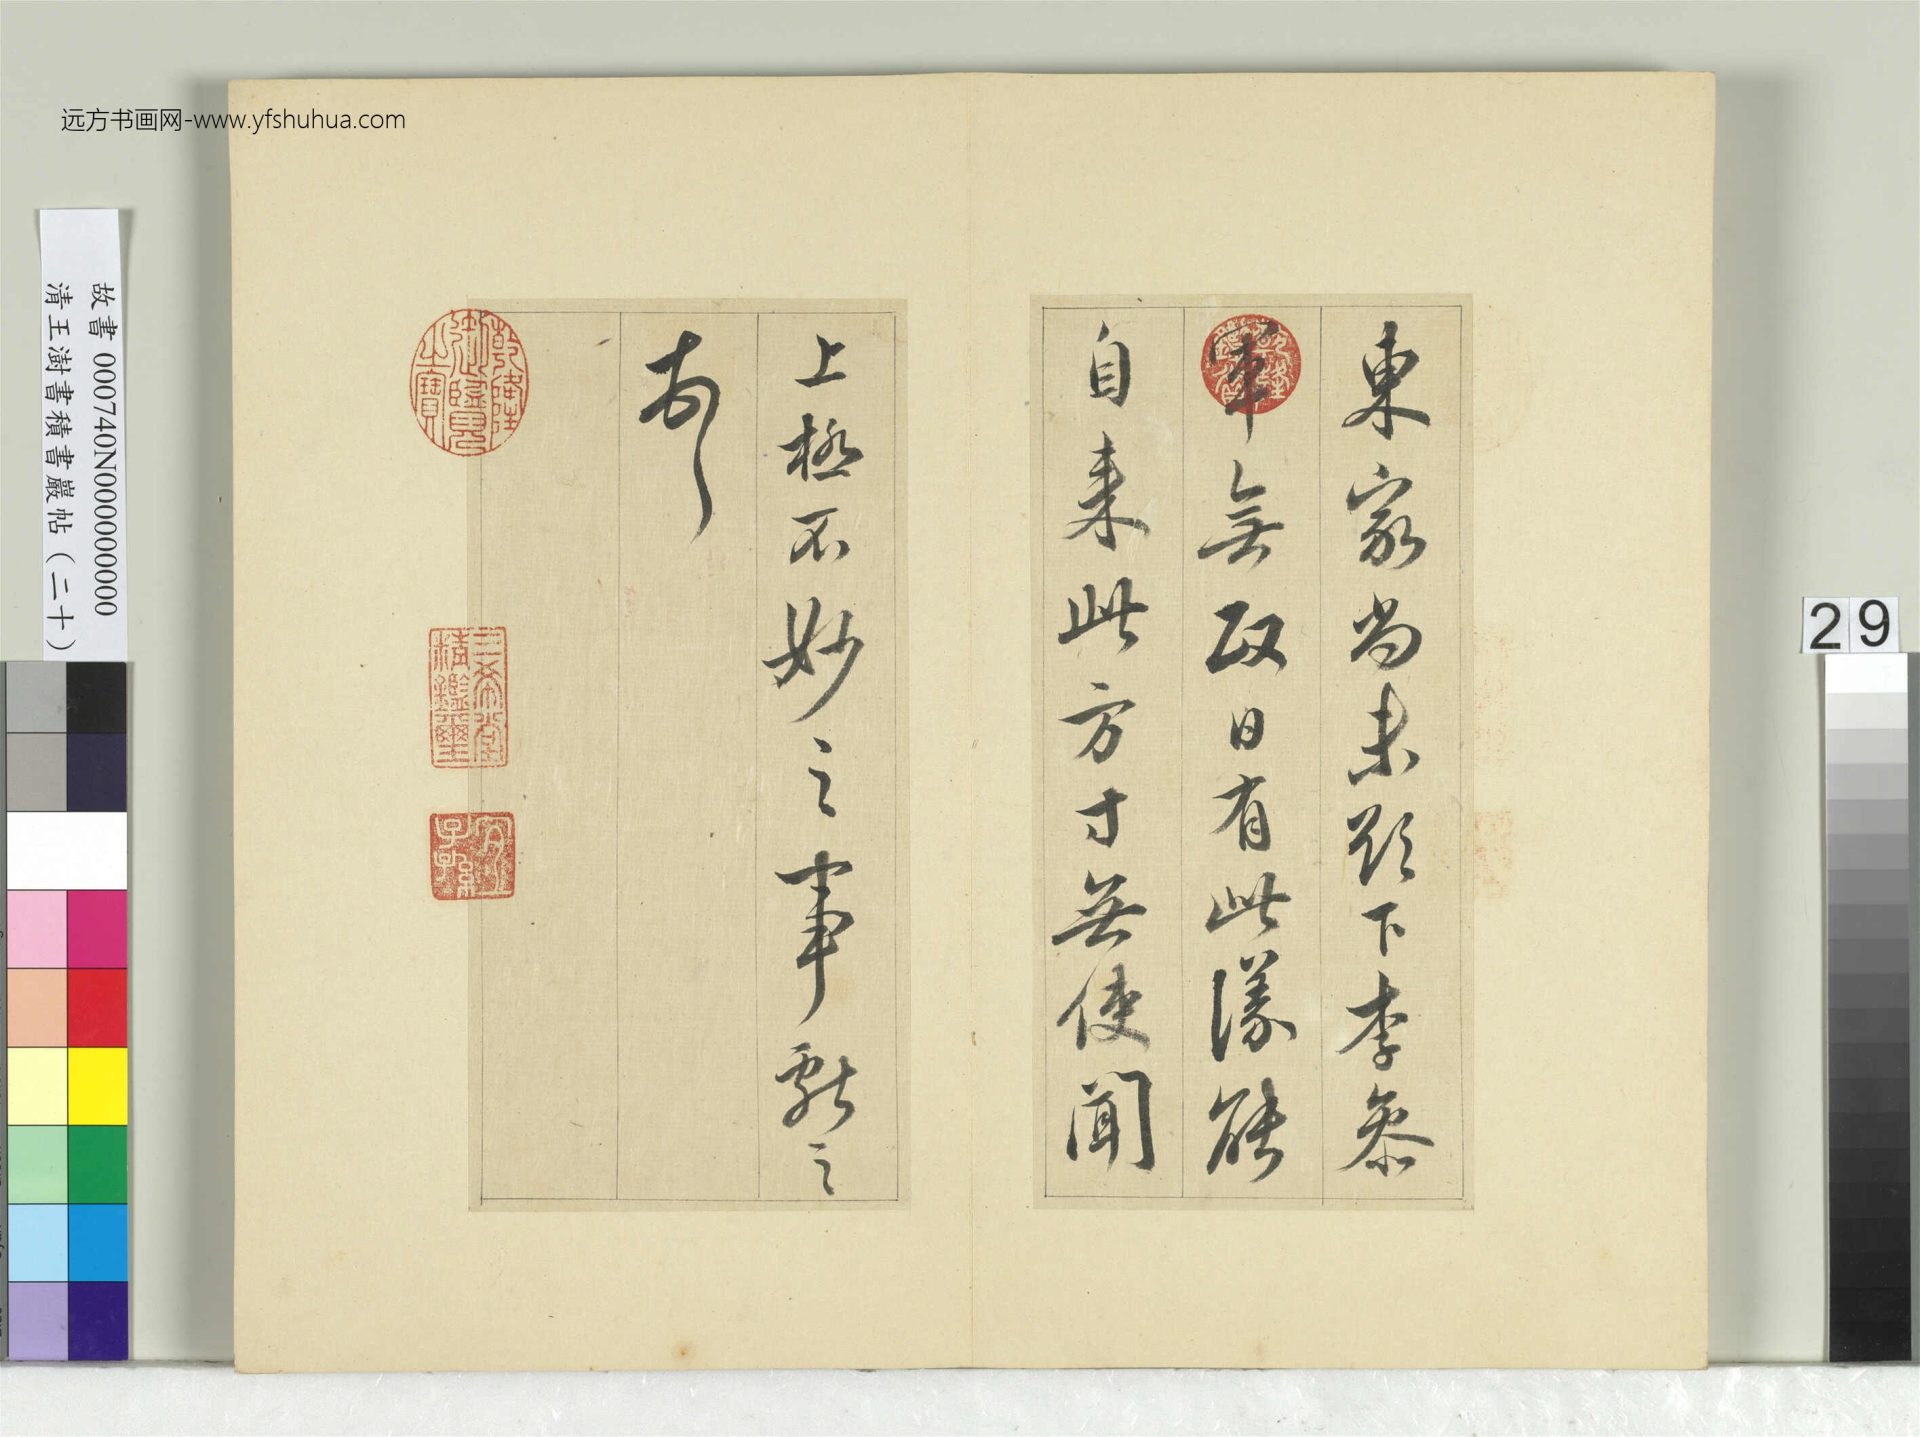 远方书画网-www.yfshuhua.com
故書 000740N000000000
清王澍書積書巖帖（二十）
29
東家尚未題下李參
軍無取日有此議能
自來此方寸無使聞
上極不妙之事耶之
乾隆御覽之寶
三希堂精鑑璽
宜子孫